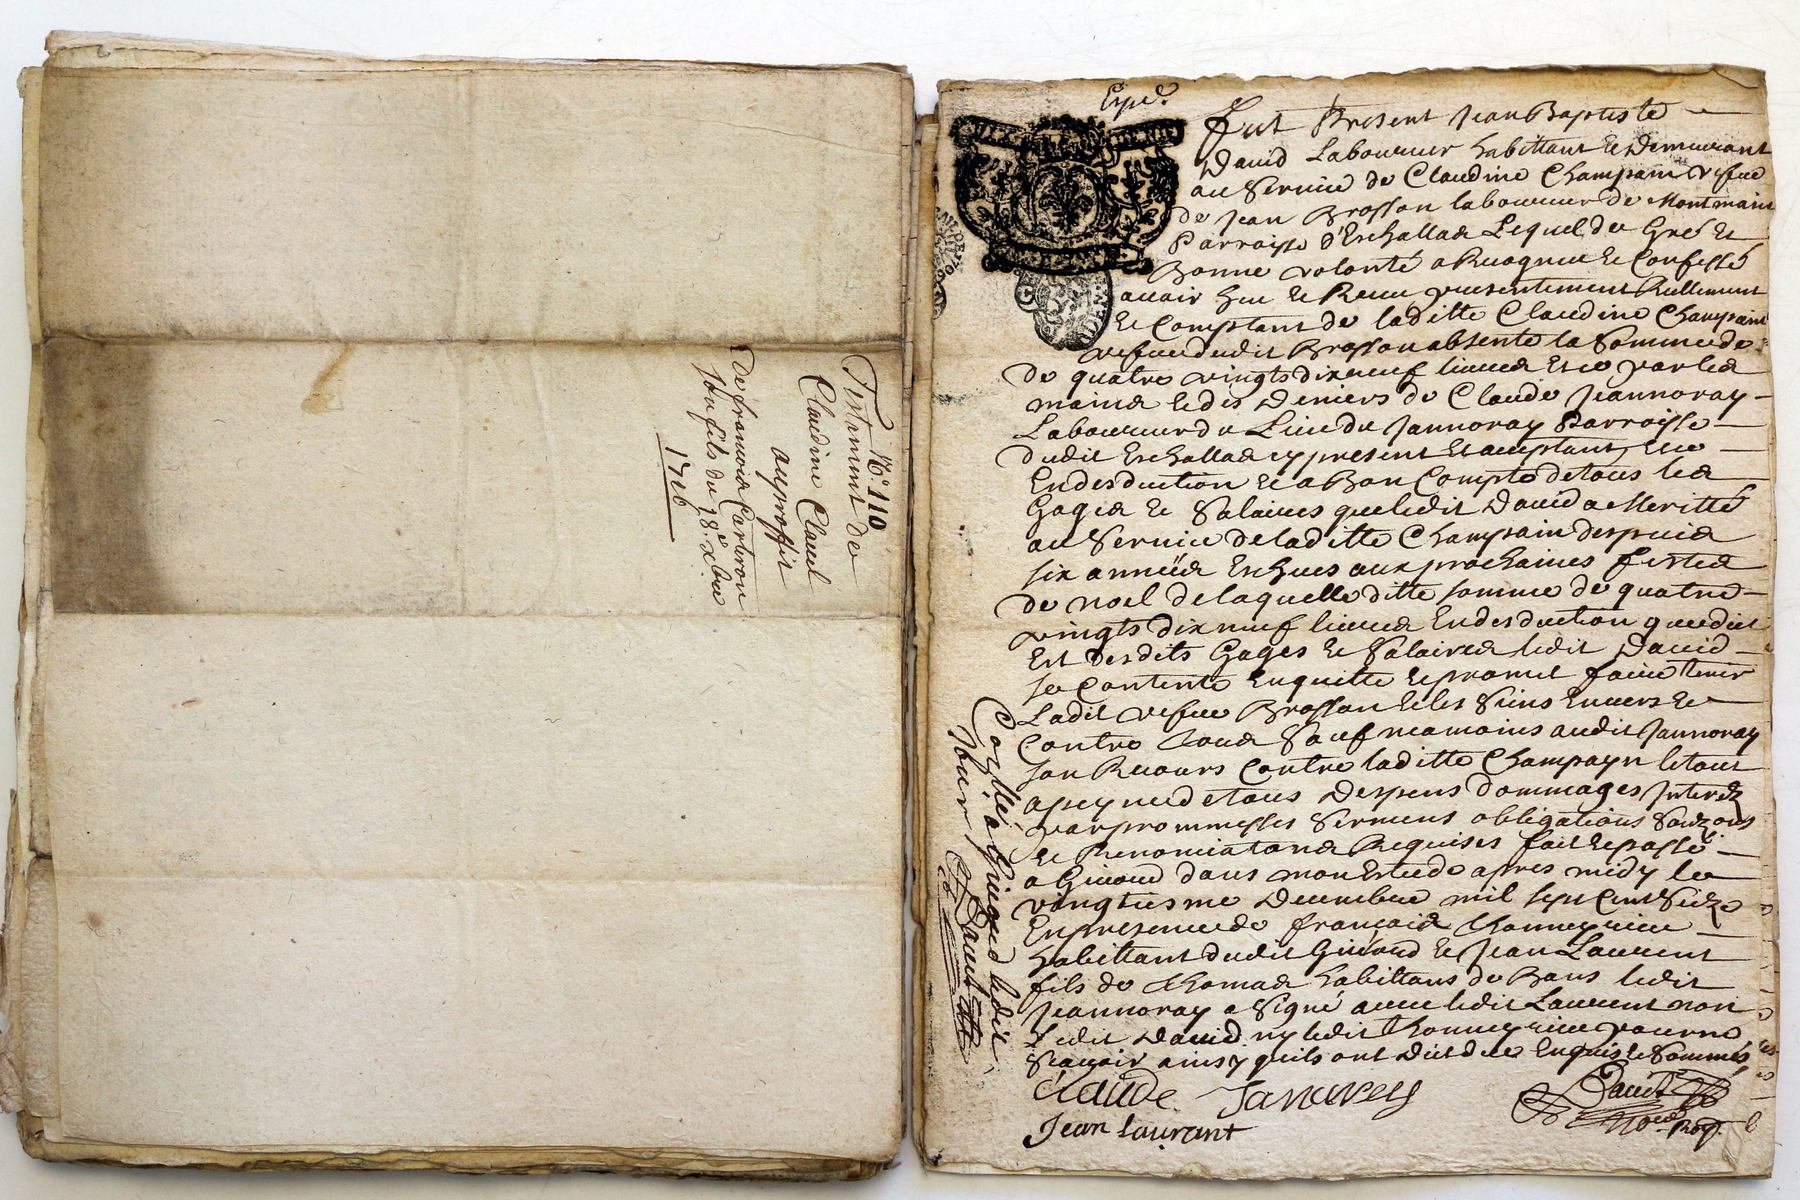 N.° 110
Testament de
Claudine Clauel
au proffit
De francois Carteron
son fils du 18e xbre
1716
Expé.
Fut Present Jean Baptiste
Dauid Laboureur habittant et Demeurant
au Seruice de Claudine Champain vefue
de Jean Brosson laboureur de Montmain
Parroisse d'Eschallas Lequel de Gré et
Bonne volonté a Recogneu et Confessé
auoir heu et Receu presentement Reellement
et Comptant de laditte Claudine Champain
vefue dudit Brosson absente la Somme de
de quatre vingts dix neuf liures et ce par les
mains et des Deniers de Claude Jeannoray
Laboureur du Lieu du Jannoray Parroisse
dudit Eschallas cy present et acceptant et ce
En desduction et a Bon Compte de tous les
Gages et Salaires que ledit Dauid a Meritté
au Seruice de laditte Champain despuis
six années Escheues aux prochaines festes
de noel de laquelle ditte somme de quatre
vingts dix neuf liures En desduction que dit
Est desdits Gages et Salaires ledit Dauid
se Contente En quitte et promet faire tenir
Ladit vefue Brosson et les Siens Enuers et
Contre Tous Sauf neamoins audit Jannoray
son Recours Contre laditte Champayn le tout
a peyne de tous Despens dommages Interez
par prommesses Sermens obligations
et Renonciations Requises fait et passé
a Giuord dans mon Estude apres midy le
vingtiesme Decembre mil sept Cent Seize
En presence de françois
habittant dudit Giuord et Jean Laurent
fils de Thomas habittans de Bans ledit
Jeannoray a Signé auec ledit Laurent non
Ledit Dauid ny ledit pour ne
Scauoir ainsy quils ont dit de ce Enquis et Sommés
Claude Janorey
Jean laurant
no.re Roy.
Collé a Giuord ledit
Jour